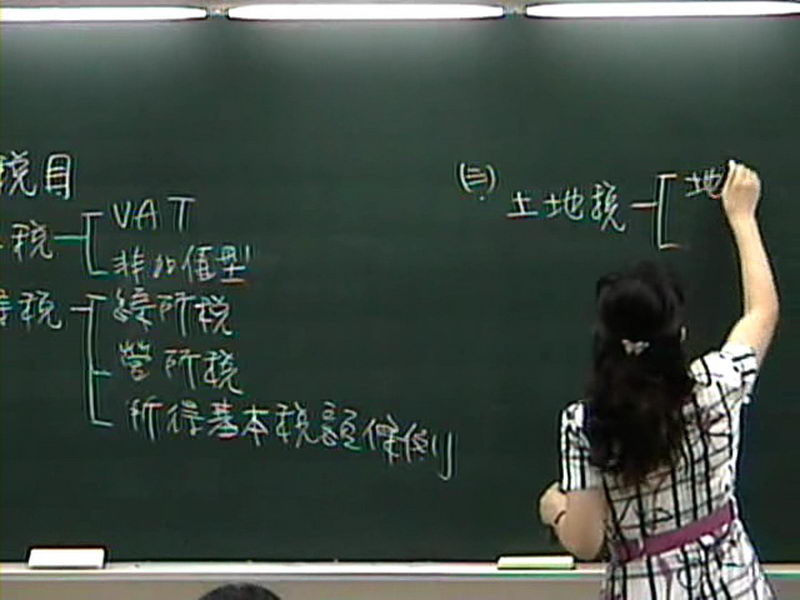 稅目
稅 VAT
非加值型
得稅 綜所稅
營所稅
所得基本稅額條例
(三) 土地稅 地